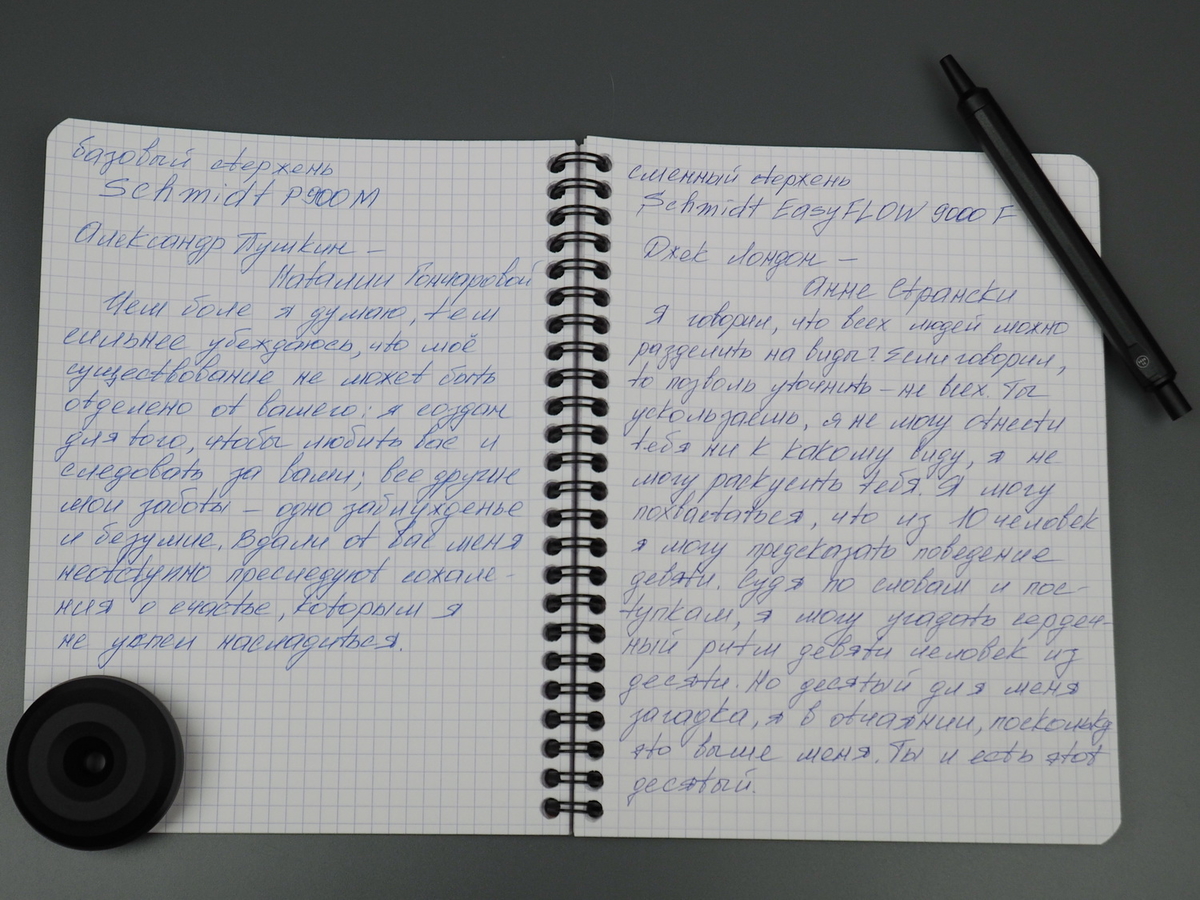 базовый стержень
Schmidt P900M
Александр Пушкин –
Наталии Гончаровой
Чем боле я думаю, тем
сильнее убеждаюсь, что моё
существование не может быть
отделено от вашего: я создан
для того, чтобы любить вас и
следовать за вами; все другие
мои заботы – одно заблужденье
и безумие. Вдали от вас меня
неотступно преследуют сожале-
ния о счастье, которым я
не успел насладиться.
сменный стержень
Schmidt EasyFLOW 9000 F
Джек Лондон –
Анне Странски
Я говорил, что всех людей можно
разделить на виды? Если говорил,
то позволь уточнить – не всех. Ты
ускользаешь, я не могу отнести
тебя ни к какому виду, я не
могу раскусить тебя. Я могу
похвастаться, что из 10 человек
я могу предсказать поведение
девяти. Судя по словам и пос-
тупкам, я могу угадать сердеч-
ный ритм девяти человек из
десяти. Но десятый для меня
загадка, я в отчаянии, поскольку
это выше меня. Ты и есть этот
десятый.